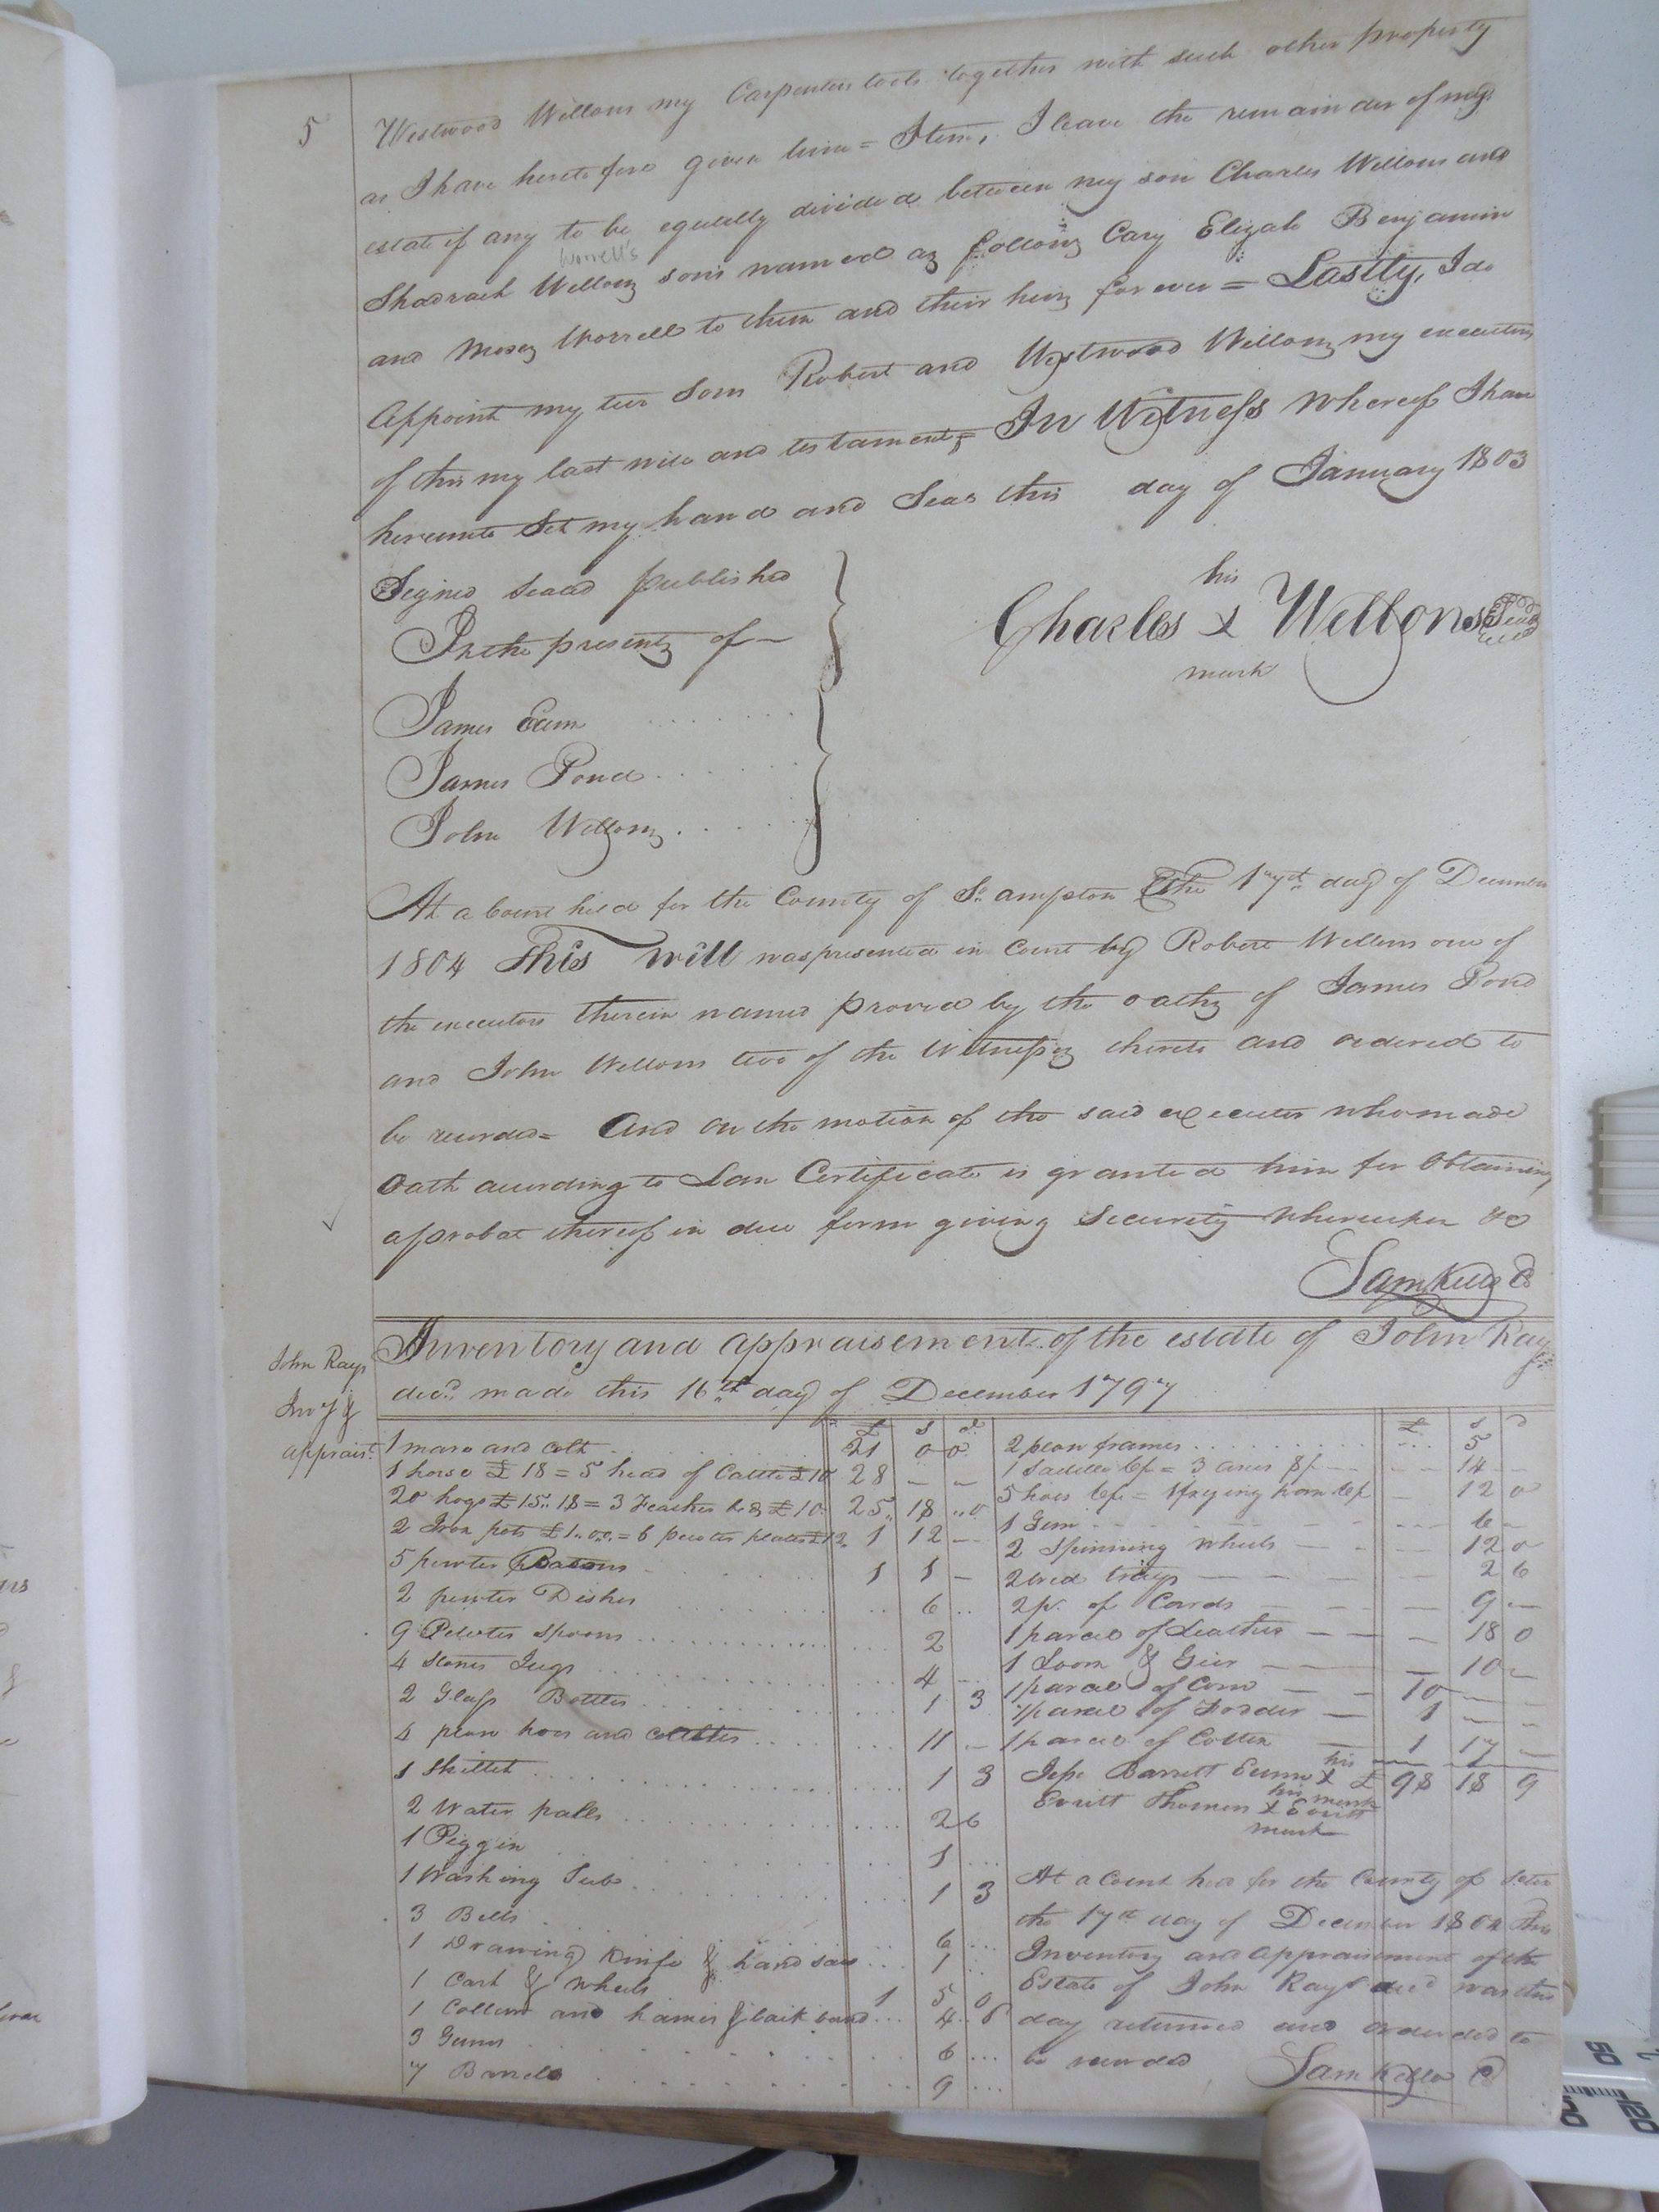 5
Westwood Wellons my Carpenters tools together with such other property
as I have heretofore given him = Item, I leave the remainder of my
estate if any to be equally divided between my son Charles Wellons and
Worrell's
Shadrach Wellons sons named as follows Cary Elijah Benjamin
and Moses Worrell to them and their heirs forever = Lastly, I do
Appoint my two sons Robert and Westwood Wellons my executors
of this my last will and testament, In Witness whereof I have
hereunto Set my hand and Seal this day of January 1803
Signed Sealed published
In the presents of
his
Charles x Wellons Seal
mark
James Eum
James Pond
John Wellons
At a Court held for the County of So. ampton the 17th day of December
1804 This will was presented in Court by Robert Wellons one of
the executors therein named proved by the oaths of James Pond
and John Wellons two of the Witnesses thereto and ordered to
be recorded = And on the motion of the said executor who made
Oath according to Law Certificate is granted him for Obtaining
a probat thereof in due form giving Security whereupon &c
Sam Kello C
John Rays
Invy &
appraist.
Inventory and appraisement of the estate of John Ray
decd. made this 16th day of December 1797
£ s d
1 mare and colt 21 0 0
1 horse £ 18 = 5 head of Cattle £10 28 - -
20 hogs £15..18 = 3 Feather beds £10 25 18 0
2 Iron pots £1.00 = 6 pewter plates £12 1 12 -
5 pewter Basons 1 1 -
2 pewter Dishes 6
9 Pewter spoons 2
4 stone Jugs 4
2 Glass Bottles 1 3
4 plow hoes and coulters 11 -
1 Skillet 1 3
2 Water palls 2 6
1 Piggin 1
1 Washing Tub 1 3
3 Bells 6
1 Drawing Knife & hand saw 1
1 Cart & wheels 1 5 0
1 Collum and hames & back band 4 6
3 Gums 6
7 Barrels 9
£ s d
2 plow frames 5
1 Saddle 6/ = 3 axes 8/ 14
5 hoes 6/ = 1 frying pann 6/ 12 0
1 Gun 6
2 Spinning wheels 12 0
2 wed trays 2 6
2 pr. of Cards 9
1 parcel of Leather 18 0
1 Loom & Geer 10
1 parcel of Corn 10
1 parcel of Fodder 1
1 parcel of Cotton 1 17
his
Jesse Barrett Eum x £ 98 18 9
his mark
Everitt Thomas x Everitt
mark
At a Court held for the County of
the 17th day of December 1804 This
Inventory and Appraisement of the
Estate of John Ray decd was this
day returned and ordered to
be recorded Sam Kello C